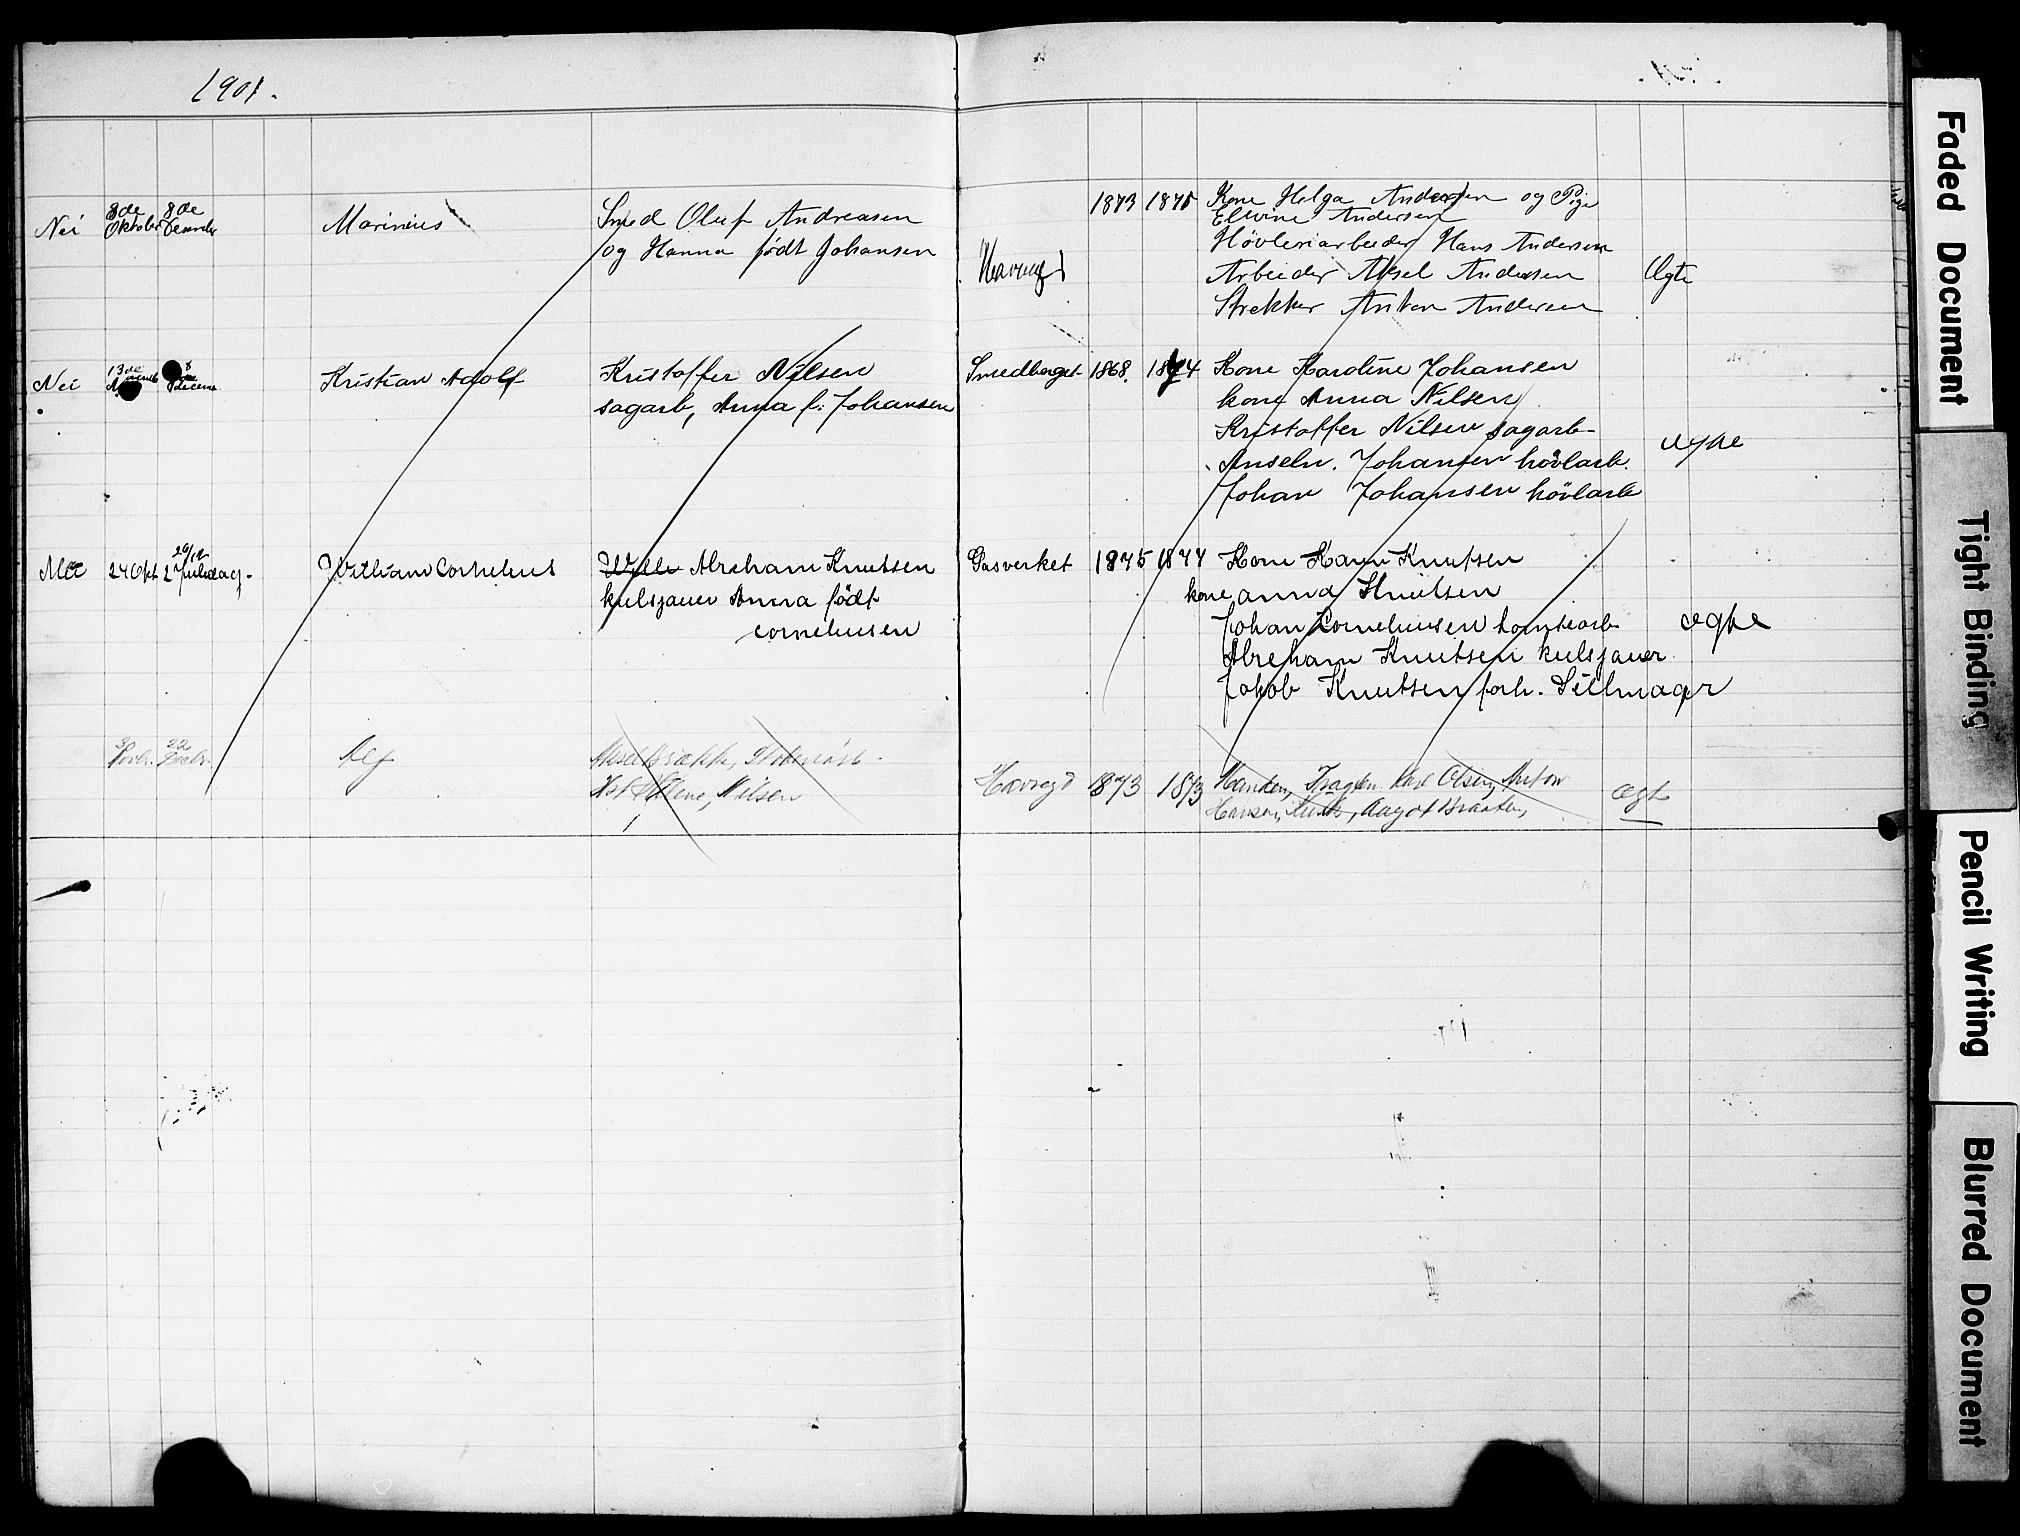 1901.
Nei 8de Oktober 8de Marinius Smed Oluf Andreasen
og Hanna født Johansen
1873 1875 Kone Helga Andersen og Pige
Elevine Andersen
Hövleriarbeider Hans Andersen
Arbeider Aksel Andersen Ægte
Strekker Anton Andersen
Nei 13de Kristian Adolf Kristoffer Nilsen
sagarb, Anna f: Johansen
Smedberget 1868. 1874 Kone Karoline Johansen
kone Anna Nilsen
Kristoffer Nilsen sagarb
Anseln. Johansen hövlarb. ægte
Johan Johansen hövlarb
Nei 24 Okt 2 Juledag William Cornelius Abraham Knutsen
kulsjauer Anna født
cornelusen
Gasverket 1875 1877 Kone Knutsen
kone anna Knutsen
Johan Corneliusen tomtearb ægte
Abreham Knutsen kulsjauer
Jakob Knutsen forh. Seilmager
22 Alf Aksel
Nilsen
1873 1873 Olsen, Anton
Hansen, Aagot Braaten, Ægt
Faded Document
Tight Binding
Pencil Writing
Blurred Document